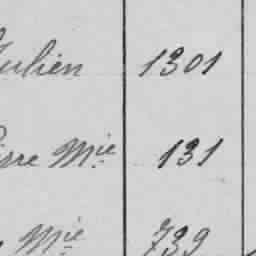 Julien 1301
ierre Mie 131
Mie 739